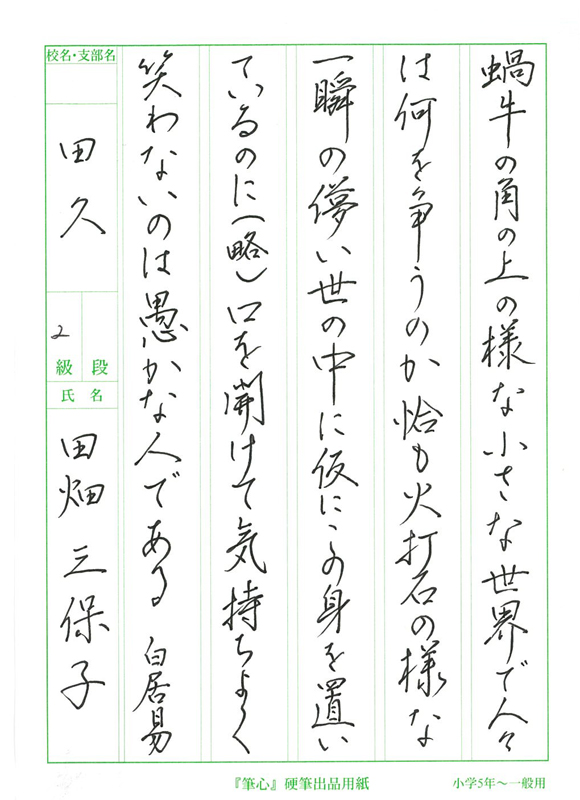 蝸牛の角の上の様な小さな世界で人々
は何を争うのか恰も火打石の様な
一瞬の儚い世の中に仮にこの身を置い
ているのに(略)口を開けて気持ちよく
笑わないのは愚かな人である 白居易
校名・支部名
田久
2
級 段
氏名
田畑三保子
『筆心』硬筆出品用紙
小学5年〜一般用